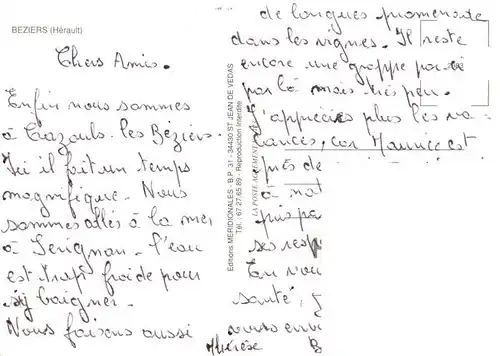 BEZIERS (Hérault)
Chers Amis.
Enfin nous sommes
à Cazouls-les Béziers.
Ici il fait un temps
magnifique. Nous
sommes allés à la mer
à Serignan - l'eau
est trop froide pour
s'y baigner.
Nous faisons aussi
Editions MERIDIONALES - B.P. 31 - 34430 ST JEAN DE VEDAS
Tél. : 67.27.65.89 - Reproduction Interdite
LA POSTE
de longues promenade
dans les vignes. Il reste
encore une grappe par ci
par là mais très peu.
J'apprécies plus les va-
cances, car Maurice est
près de
à
pris pa
ses resp
En vou
santé,
vous env
Thérèse